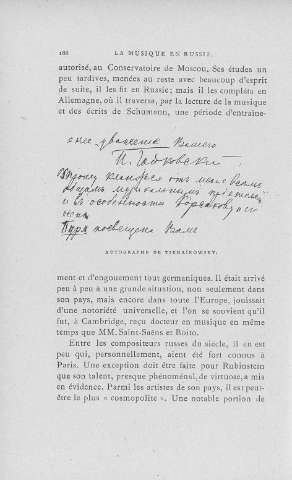 188 LA MUSIQUE EN RUSSIE.
autorisé, au Conservatoire de Moscou. Ses études un
peu tardives, menées au reste avec beaucoup d'esprit
de suite, il les fit en Russie; mais il les compléta en
Allemagne, où il traversa, par la lecture de la musique
et des écrits de Schumann, une période d'entraîne-
уважение
П. Чайковский
кланяйся отъ меня всемъ
и въ особенности
AUTOGRAPHE DE TSCHAÏKOWSKY.
ment et d'engouement tout germaniques. Il était arrivé
peu à peu à une grande situation, non seulement dans
son pays, mais encore dans toute l'Europe, jouissait
d'une notoriété universelle, et l'on se souvient qu'il
fut, à Cambridge, reçu docteur en musique en même
temps que MM. Saint-Saëns et Boito.
Entre les compositeurs russes du siècle, il en est
peu qui, personnellement, aient été fort connus à
Paris. Une exception doit être faite pour Rubinstein
que son talent, presque phénoménal, de virtuose, a mis
en évidence. Parmi les artistes de son pays, il est peut-
être le plus « cosmopolite ». Une notable portion de